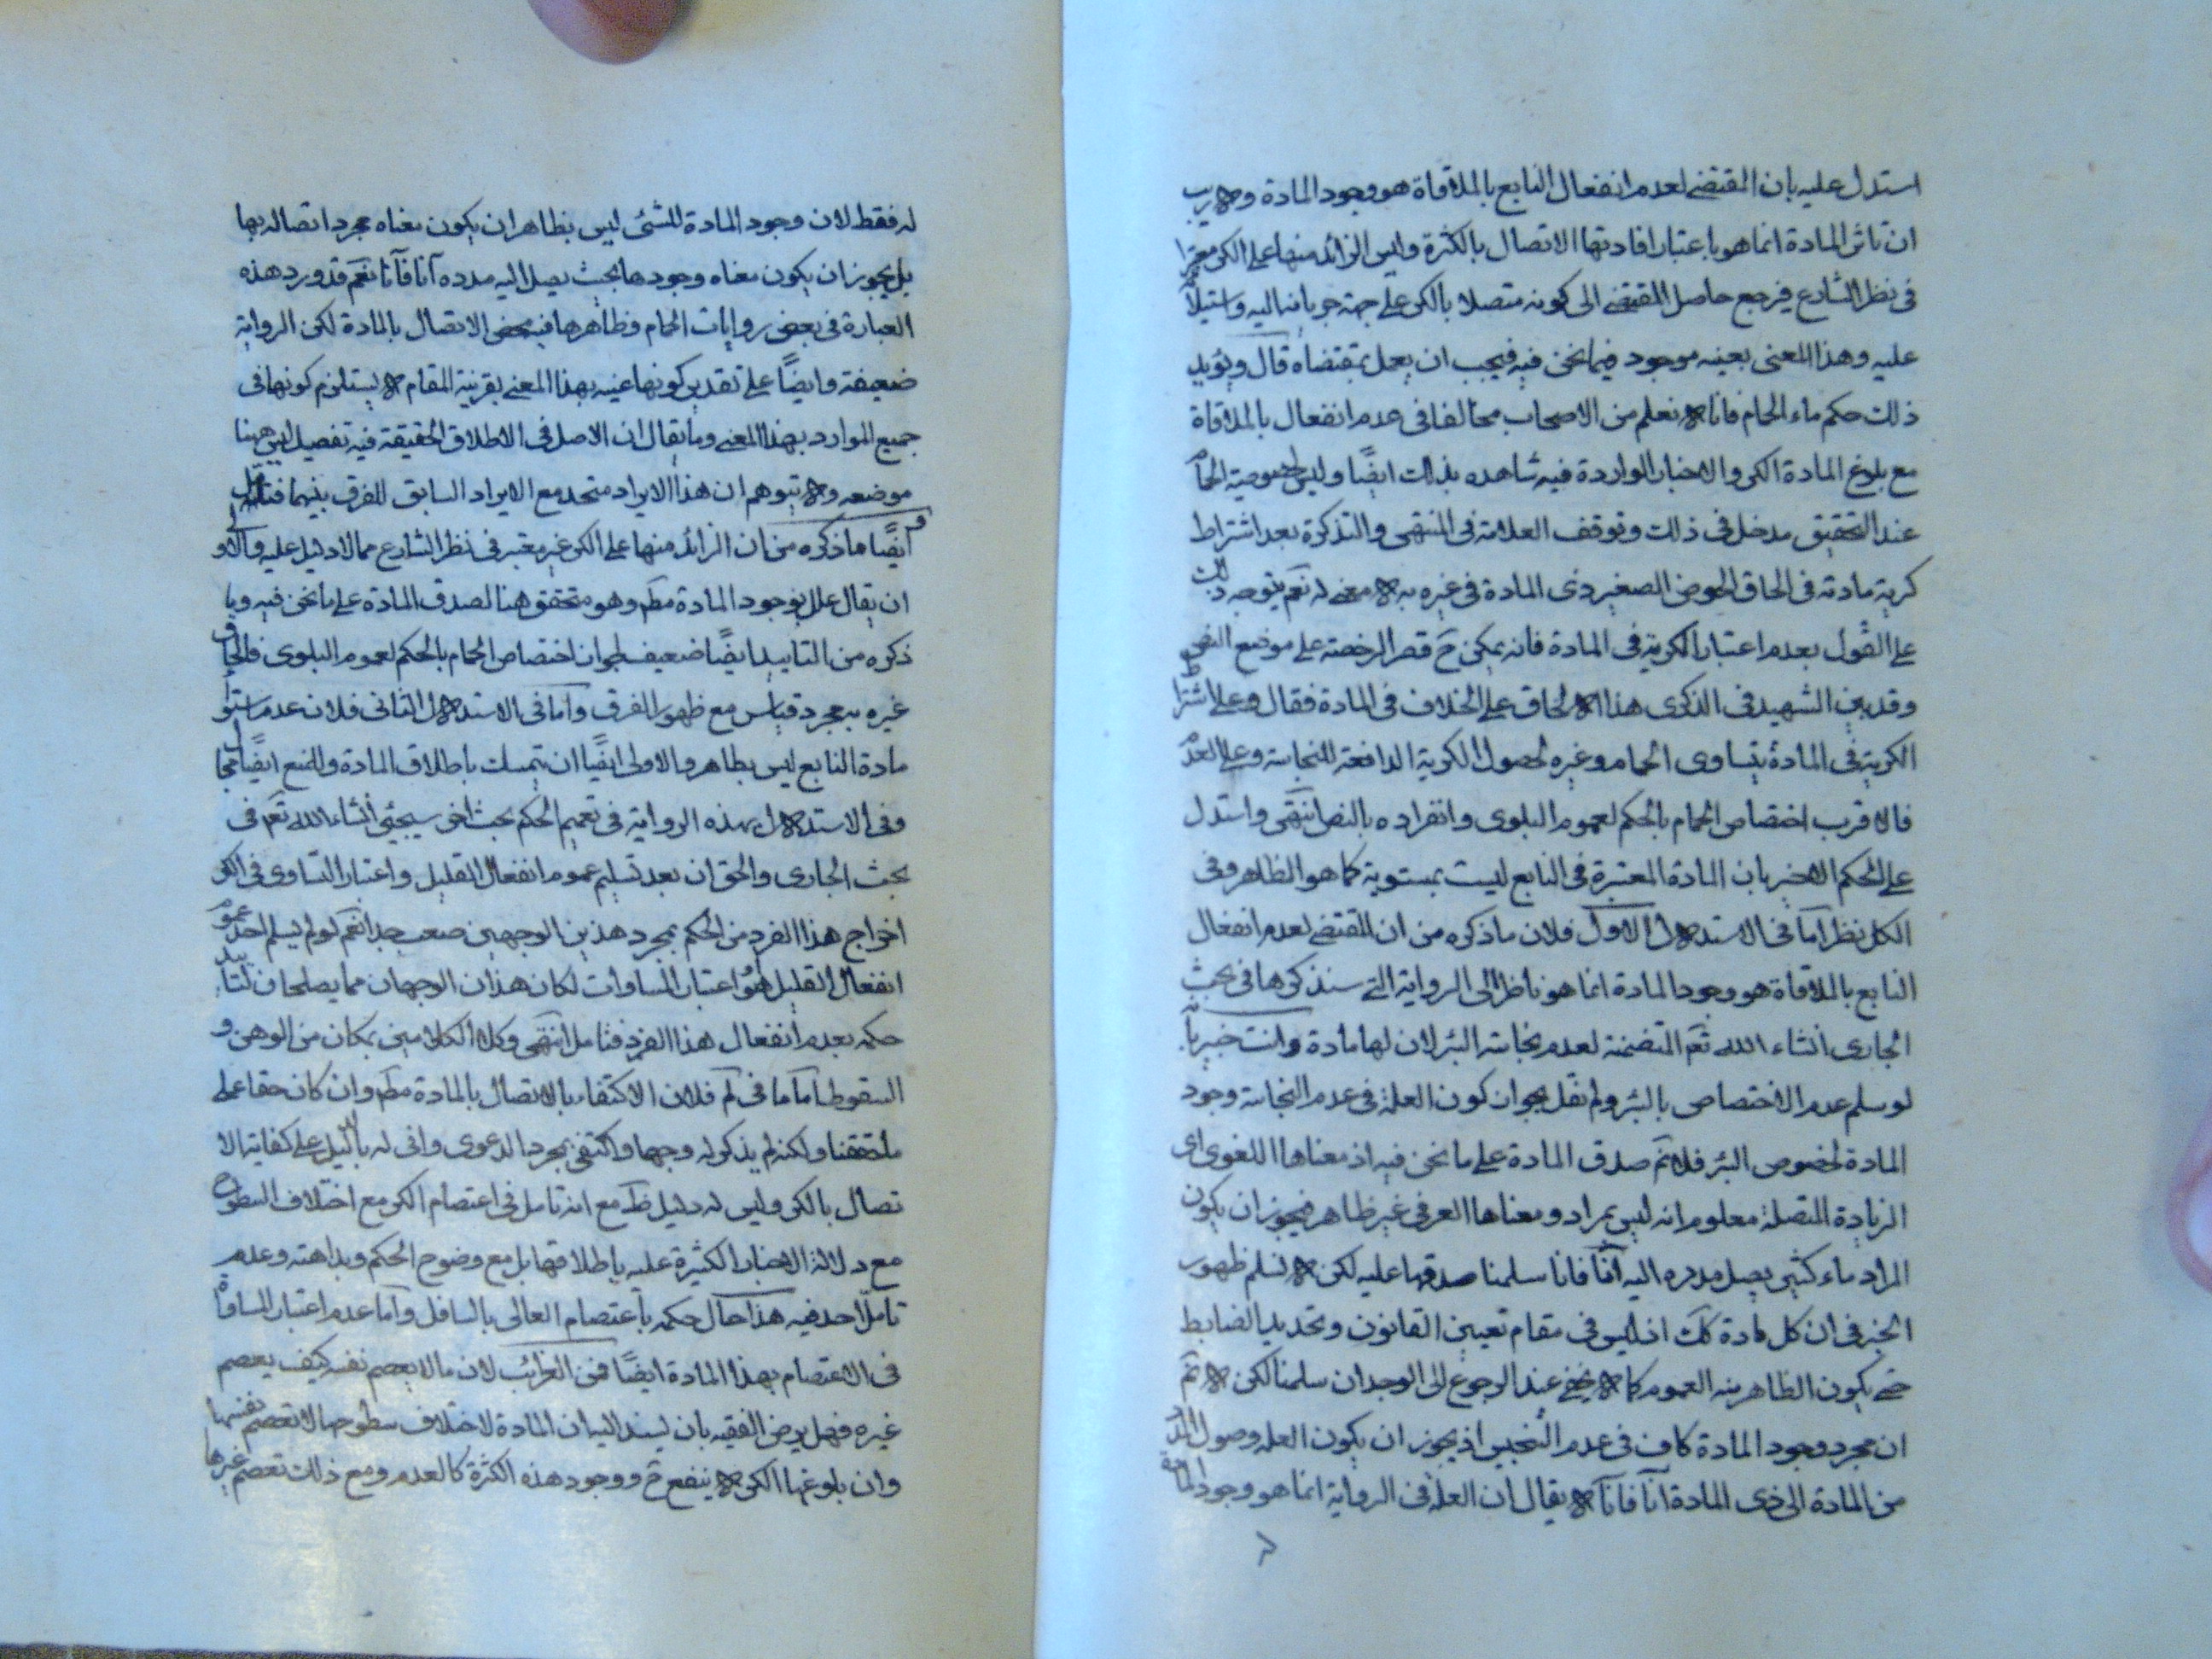 استدل عليه بان المقتضى لعدم انفعال النابع بالملاقاة هو وجود المادة ولا ريب
ان تاثر المادة انما هو باعتبار افادتها الاتصال بالكثرة وليس الزائد منها على الكر معتبرا
فى نظر الشارع فيرجع حاصل المقتضى الى كونه متصلا بالكر على جهة جريانه اليه واستيلائه
عليه وهذا المعنى بعينه موجود فيما نحن فيه فيجب ان يعمل بمقتضاه قال ويؤيد
ذلك حكم ماء الحمام فانا لا نعلم من الاصحاب مخالفا فى عدم انفعال بالملاقاة
مع بلوغ المادة الكر والاخبار الواردة فيه شاهده بذلك ايضًا وليس لخصوصية الحمام
عند التحقيق مدخل فى ذلك وتوقف العلامة فى المنتهى والتذكرة بعد اشتراط
كرية مادته فى الحاق الحوض الصغير ذى المادة فى غيره به لا معنى له نعم يتوجه ذلك
على القول بعدم اعتبار الكرية فى المادة فانه يمكن ح قصر الرخصة على موضع النص
وقد بين الشهيد فى الذكرى هذا الالحاق على الخلاف فى المادة فقال وعلى اشتراط
الكرية فى المادة يتساوى الحمام وغيره لحصول الكرية الدافعة للنجاسة وعلى العدم
فالاقرب اختصاص الحمام بالحكم لعموم البلوى وانفراده بالنص انتهى واستدل
على الحكم الاخير بان المادة المعتبرة فى النابع ليست بمستوية كما هو الظاهر وفى
الكل نظر اما فى الاستدلال الاول فلان ما ذكره من ان المقتضى لعدم انفعال
النابع بالملاقاة هو وجود المادة انما هو ناظر الى الرواية التى سنذكرها فى بحث
الجارى انشاء الله تعم المتضمنة لعدم نجاسة البئر لان لها مادة وانت خبير بانه
لو سلم عدم الاختصاص بالبئر ولم نقل بجوان كون العلة فى عدم النجاسة وجود
المادة لخصوص البئر فلا نم صدق المادة على ما نحن فيه اذ معناها اللغوى اى
الزيادة المتصلة معلوم انه ليس بمراد ومعناها العرفى غير ظاهر فيجوز ان يكون
المراد ماء كثير يصل مدده اليه آنا فانا سلمنا صدقها عليه لكن لا نسلم ظهور
الخبر فى ان كل مادة كك اذ ليس فى مقام تعيين القانون وتحديد الضابط
حتى يكون الظاهر منه العموم كما لا يخفى عند الرجوع الى الوجدان سلمنا لكن لا نم
ان مجرد وجود المادة كاف فى عدم التنجيس اذ يجوز ان يكون العلة وصول المدد
من المادة الى ذى المادة آنا فآنا لا يقال ان العلة فى الرواية انما هو وجود المادة
له فقط لان وجود المادة للشئ ليس بظاهر ان يكون معناه مجرد اتصاله بها
بل يجوز ان يكون معناه وجودها بحيث يصل اليه مدده آنا فآنا نعم قد ورد هذه
العبارة فى بعض روايات الحمام وظاهرها فيه محض الاتصال بالمادة لكن الرواية
ضعيفة وايضًا على تقدير كونها عنيه بهذا المعنى بقرينة المقام لا يستلزم كونها فى
جميع الموارد بهذا المعنى وما يقال ان الاصل فى الاطلاق الحقيقة فيه تفصيل ليس ههنا
موضعه ولا يتوهم ان هذا الايراد متحد مع الايراد السابق للفرق بينهما فتامل و
ايضًا ما ذكره من ان الزائد منها على الكر غير معتبر فى نظر الشارع مما لا دليل عليه والاولى
ان يقال علل بوجود المادة مطم وهو متحقق هنا لصدق المادة على ما نحن فيه وما
ذكره من التاييد ايضًا ضعيف لجوان اختصاص الحمام بالحكم لعموم البلوى فالحاق
غيره به مجرد قياس مع ظهور الفرق واما فى الاستدلال الثانى فلان عدم استواء
مادة النابع ليس بظاهر والاولى ايضًا ان يتمسك باطلاق المادة والمنع ايضًا مجال
وفى الاستدلال بهذه الرواية فى تعميم الحكم بحث اخر سيجئ انشاء الله تعم فى
بحث الجارى والحق ان بعد تسليم عموم انفعال القليل واعتبار التساوى فى الكر
اخراج هذا الفرد من الحكم بمجرد هذين الوجهين صعب جدا نعم لو لم يسلم احد عموم
انفعال القليل او اعتبار المساوات لكان هذان الوجهان مما يصلحان لتاييد
حكمه بعدم انفعال هذا الفرد فتامل انتهى وكلا الكلامين بمكان من الوهن و
السقوط اما ما فى كم فلان الاكتفاء بالاتصال بالمادة مطم وان كان حقا على
ما حققنا ولكنه لم يذكر له وجها واكتفى بمجرد الدعوى وانى له بالدليل على كفاية الا
تصال بالكر وليس له دليل ظ مع انه تامل فى اعتصام الكر مع اختلاف السطوح
مع دلالة الاخبار الكثيرة عليه باطلاقها بل مع وضوح الحكم وبداهته وعدم
تامل احد فيه هذا حال حكمه باعتصام العالى بالسافل واما عدم اعتبار المساواة
فى الاعتصام بهذا المادة ايضًا فمن الغرائب لان ما لا يعصم نفسه كيف يعصم
غيره فهل يرضى الفقيه بان يسند اليه ان المادة لاختلاف سطوحها لا تعصم نفسها
وان بلوغها الكر لا ينفع ح ووجود هذه الكثرة كالعدم ومع ذلك تعصم غيرها